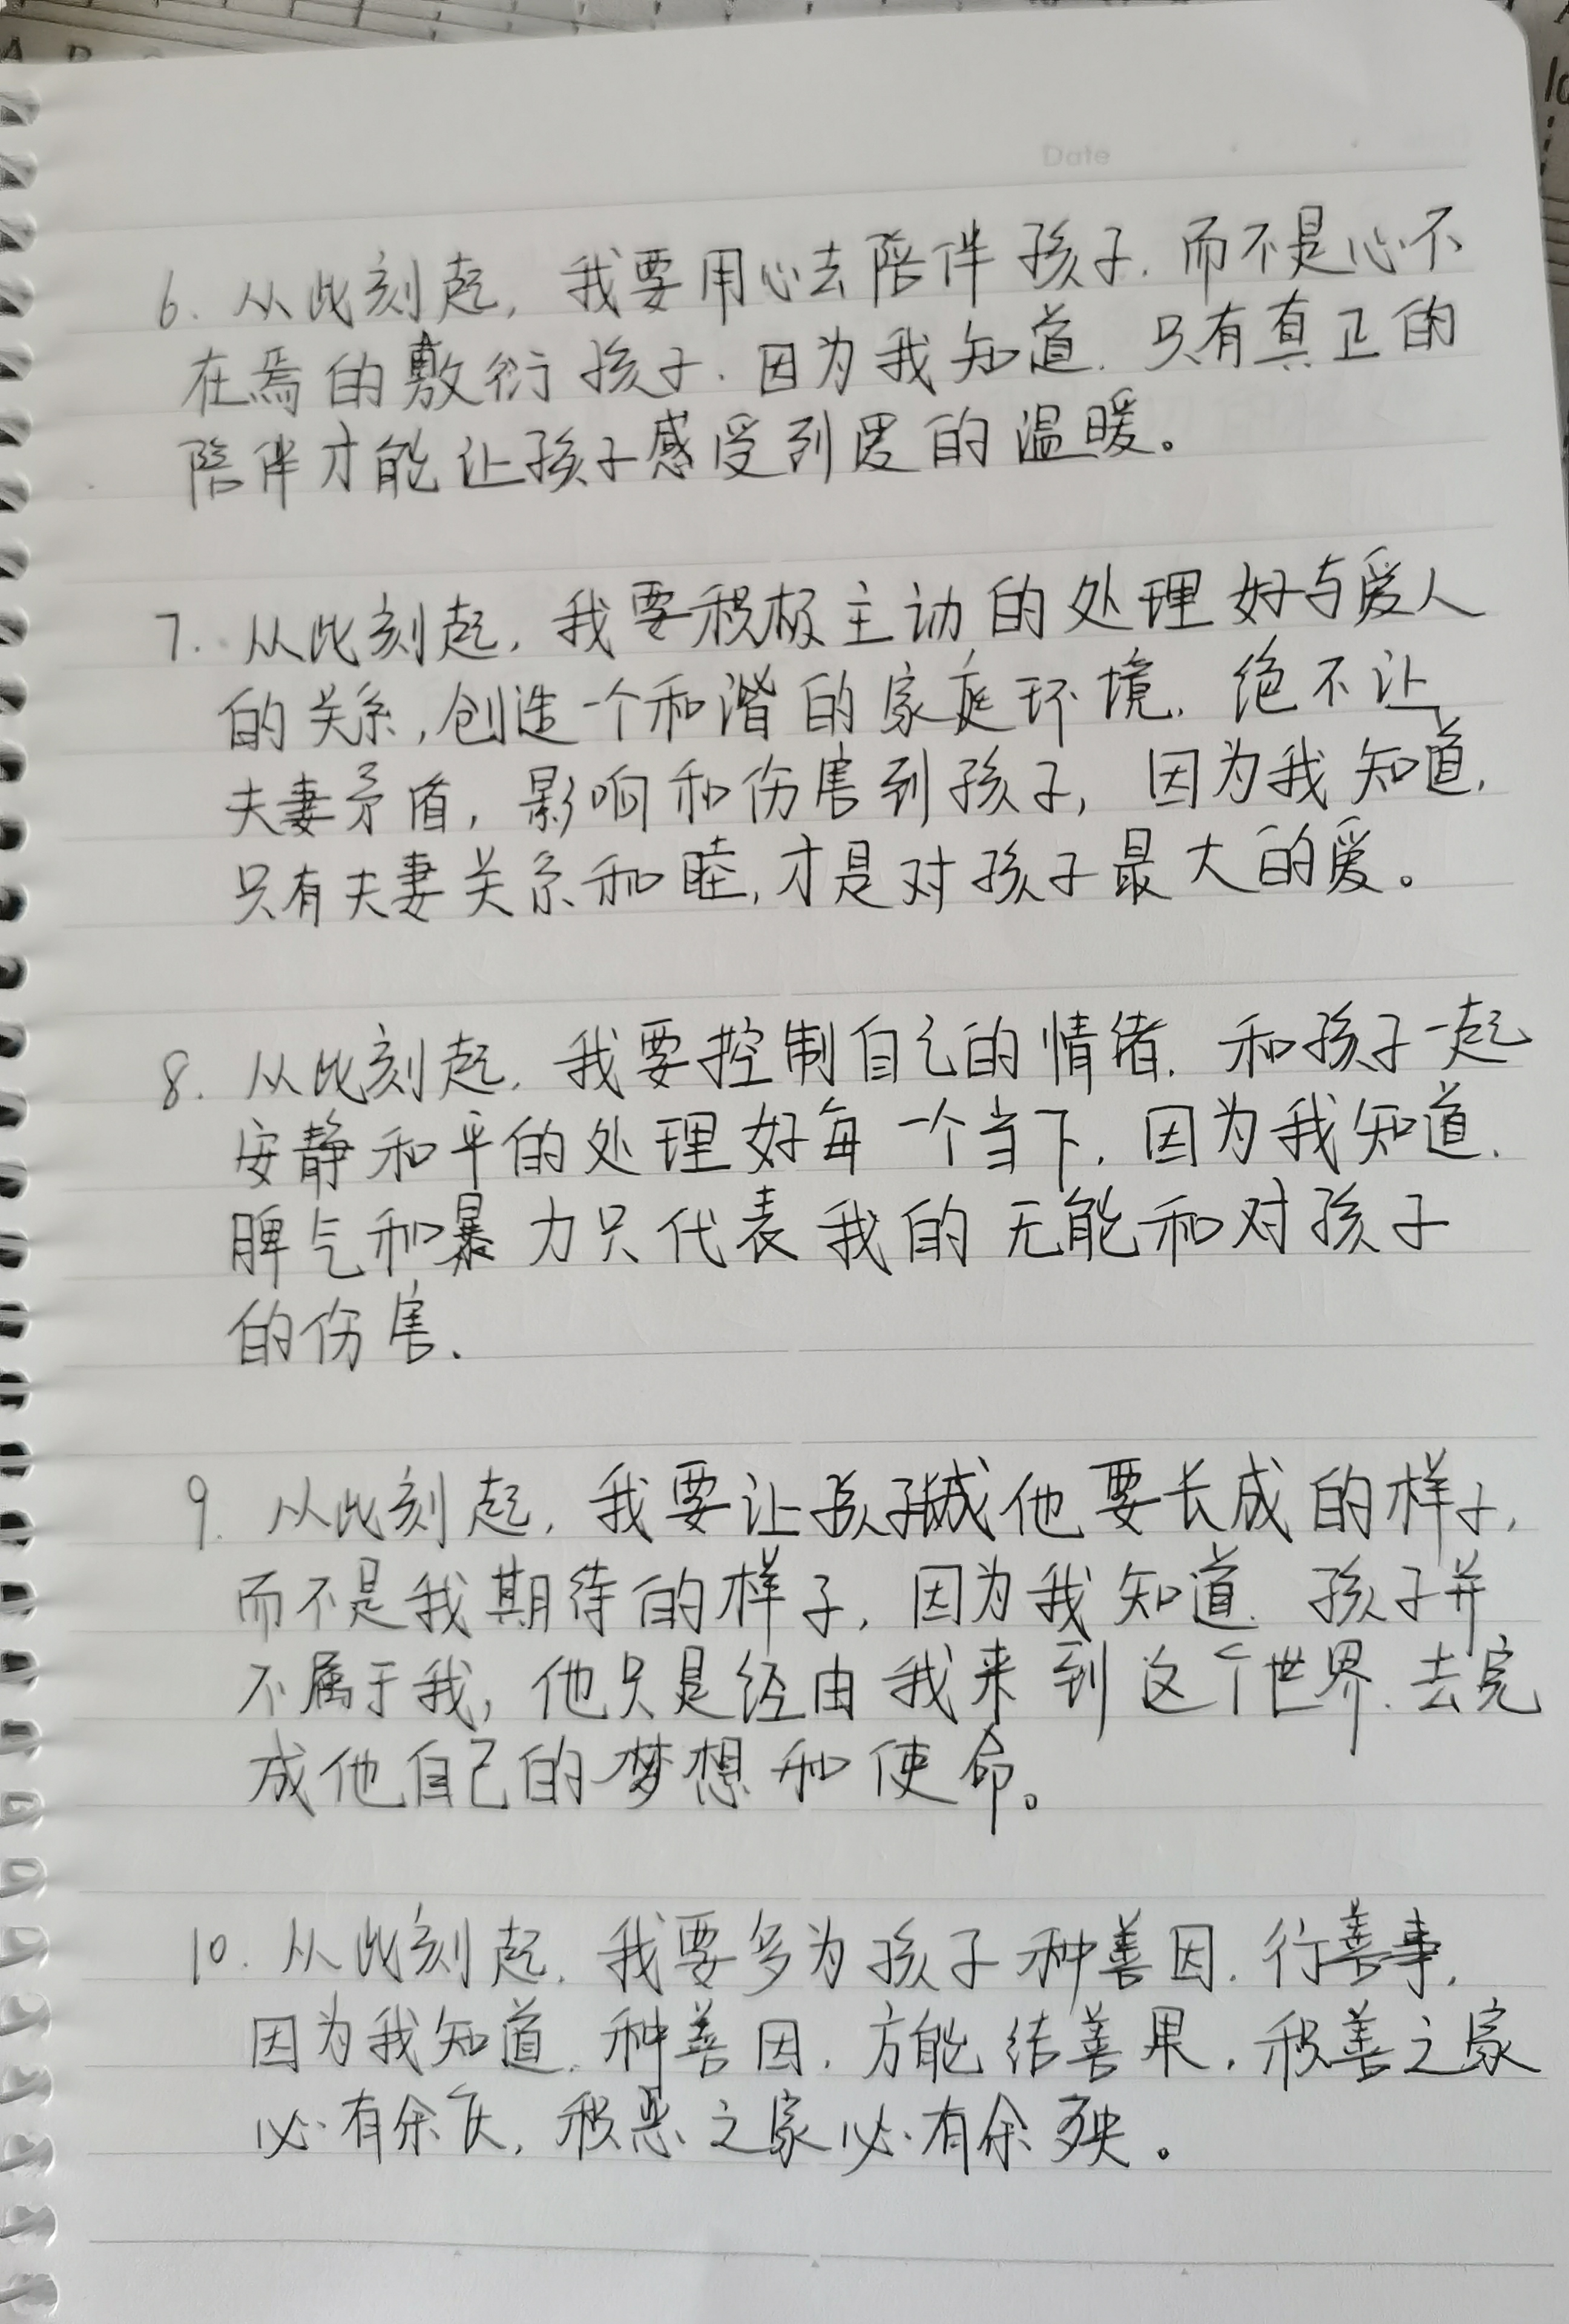 Date
6. 从此刻起, 我要用心去陪伴孩子. 而不是心不
在焉的敷衍孩子. 因为我知道. 只有真正的
陪伴才能让孩子感受到爱的温暖。
7. 从此刻起, 我要积极主动的处理好与爱人
的关系, 创造一个和谐的家庭环境. 绝不让
夫妻矛盾, 影响和伤害到孩子, 因为我知道,
只有夫妻关系和睦, 才是对孩子最大的爱。
8. 从此刻起, 我要控制自己的情绪. 和孩子一起
安静和平的处理好每一个当下. 因为我知道.
脾气和暴力只代表我的无能和对孩子
的伤害.
9. 从此刻起, 我要让孩子成他要长成的样子,
而不是我期待的样子, 因为我知道. 孩子并
不属于我, 他只是经由我来到这个世界. 去完
成他自己的梦想和使命。
10. 从此刻起. 我要多为孩子种善因. 行善事.
因为我知道. 种善因. 方能结善果. 积善之家
必有余庆, 积恶之家必有余殃。